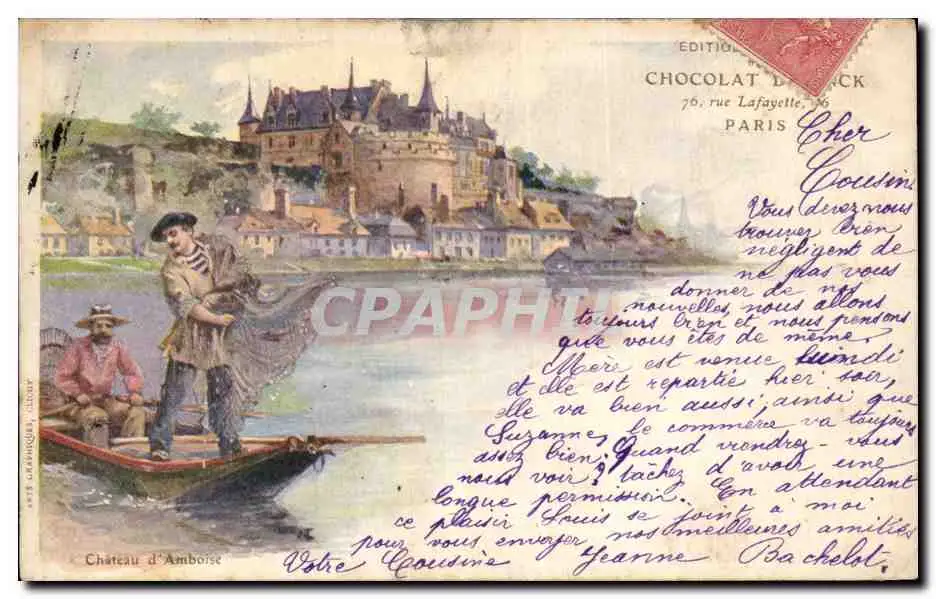 EDITIO
CHOCOLAT D NCK
76, rue Lafayette, 76
PARIS
Cher
Cousine
Vous devez nous
trouver bien
négligent de
ne pas vous
donner de nos
nouvelles, nous allons
toujours bien et nous pensons
que vous êtes de même.
Mère est venue lundi
et elle est repartie hier soir,
elle va bien aussi, ainsi que
Suzanne, le commerce va toujours
assez bien. Quand viendrez-vous
nous voir? tâchez d'avoir une
longue permission. En attendant
ce plaisir Louis se joint à moi
pour vous envoyer nos meilleures amitiés
Votre Cousine Jeanne Bachelot.
CPAPHI
ARTS GRAPHIQUES, CLICHY
Château d'Amboise